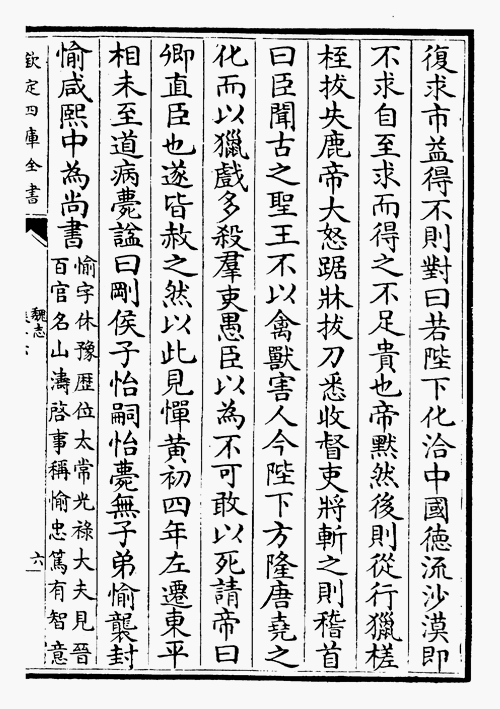 復求市益得不則對曰若陛下化洽中國徳流沙漠即
不求自至求而得之不足貴也帝黙然後則從行獵槎
桎拔失鹿帝大怒踞牀拔刀悉收督吏將斬之則稽首
曰臣聞古之聖王不以禽獸害人今陛下方隆唐堯之
化而以獵戲多殺羣吏愚臣以為不可敢以死請帝曰
卿直臣也遂皆赦之然以此見憚黄初四年左遷東平
相未至道病薨諡曰剛侯子怡嗣怡薨無子弟愉襲封
愉咸熙中為尚書
愉字休豫歴位太常光禄大夫見晉
百官名山濤啓事稱愉忠篤有智意
欽定四庫全書
魏志
六